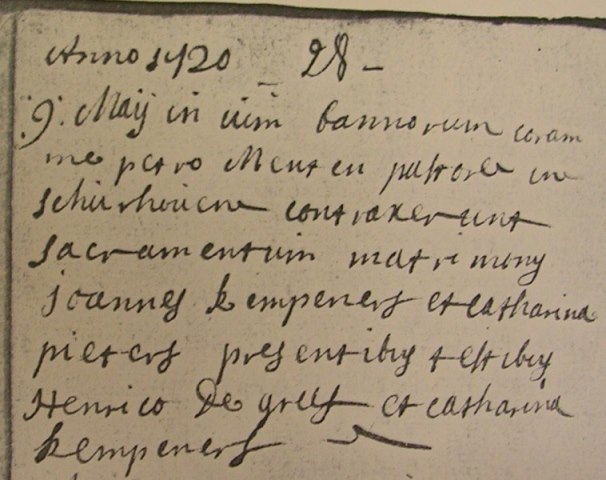 Anno 1720 28 -
.9. Maij in vim bannorum coram
me petro Menten pastore in
schurhoven contraxerunt
sacramentum matrimony
joannes kempeners et catharina
pieters presentibus testibus
Henrico De grees et catharina
kempeners